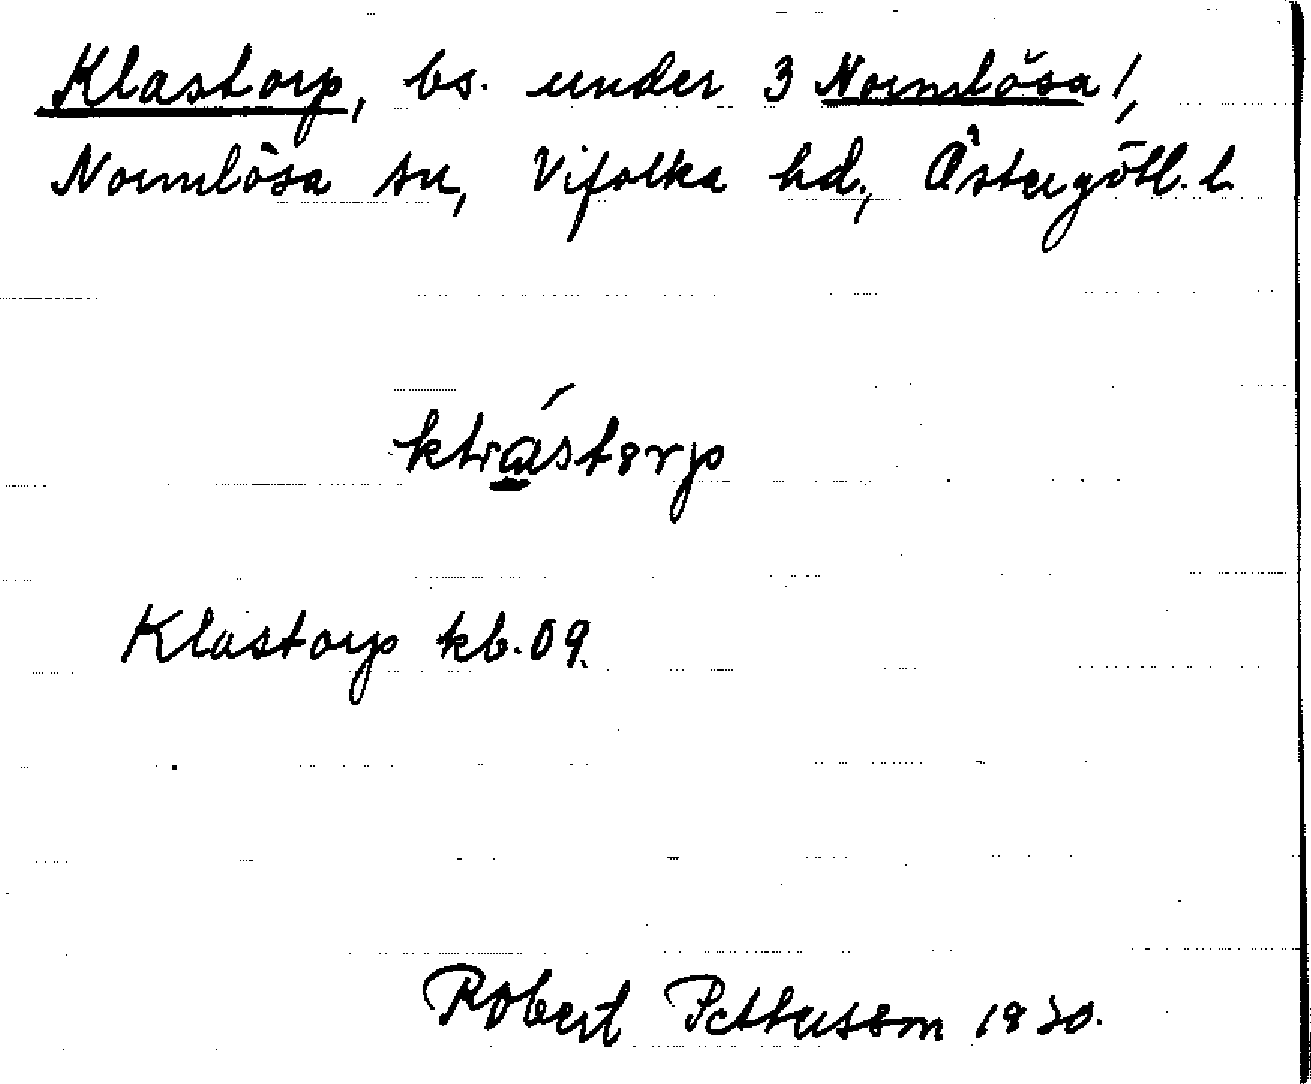 Klastorp, bs. under 3 Normlösa!,
Normlösa sn, Vifolka hd., Östergötl. l.
Klastorp kb. 09.
Robert Pettersson